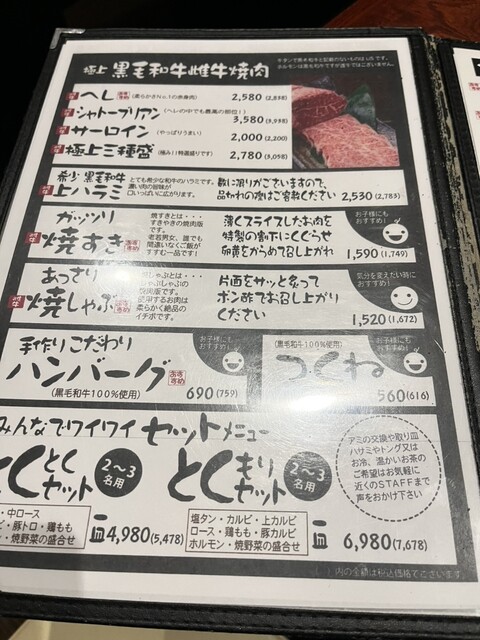 極上 黒毛和牛雌牛焼肉
ヘレ (柔らかさNo.1の赤身肉) 2,580 (2,838)
シャトーブリアン (ヘレの中でも最高の部位!) 3,580
サーロイン (やっぱりうまい) 2,000 (2,200)
極上三種盛 (極み!!特選盛りです) 2,780 (3,058)
希少 黒毛和牛
上ハラミ
とても希少な和牛のハラミです。
濃い肉の旨味が
口いっぱいに広がります。
数に限りがございますので、
品切れの際はご容赦ください 2,530 (2,783)
ガッツリ
焼すき
焼すきとは・・・
すきやきの焼肉版
です。
老若男女、誰でも
間違いなくご飯が
すすむ一品です!
薄くスライスしたお肉を
特製の割下にくぐらせ
卵黄をからめて召し上がれ
お子様にも
おすすめ!
1,590 (1,749)
あっさり
焼しゃぶ
しゃぶとは・・・
しゃぶしゃぶの
焼肉版です。
使用するお肉は
柔らかく絶品の
イチボです。
片面をサッと炙って
ポン酢でお召し上がり
ください
気分を変えたい時に
おすすめ!
1,520 (1,672)
手作りこだわり
ハンバーグ
(黒毛和牛100%使用)
お子様にも
おすすめ!
690 (759)
(黒毛和牛100%使用)
つくね
お子様にも
おすすめ!
560 (616)
みんなでワイワイ セットメニュー
とくとく
セット
2~3
名用
・中ロース
・豚トロ・鶏もも
野菜の盛合せ
皿 4,980 (5,478)
とくもり
セット
2~3
名用
塩タン・カルビ・上カルビ
ロース・鶏もも・豚カルビ
ホルモン・焼野菜の盛合せ
皿 6,980 (7,678)
アミの交換や取り皿
ハサミやトング又は
お冷、温かいお茶の
ご希望はお気軽に
近くのSTAFFまで
声をおかけ下さい
内の金額は税込価格でございます